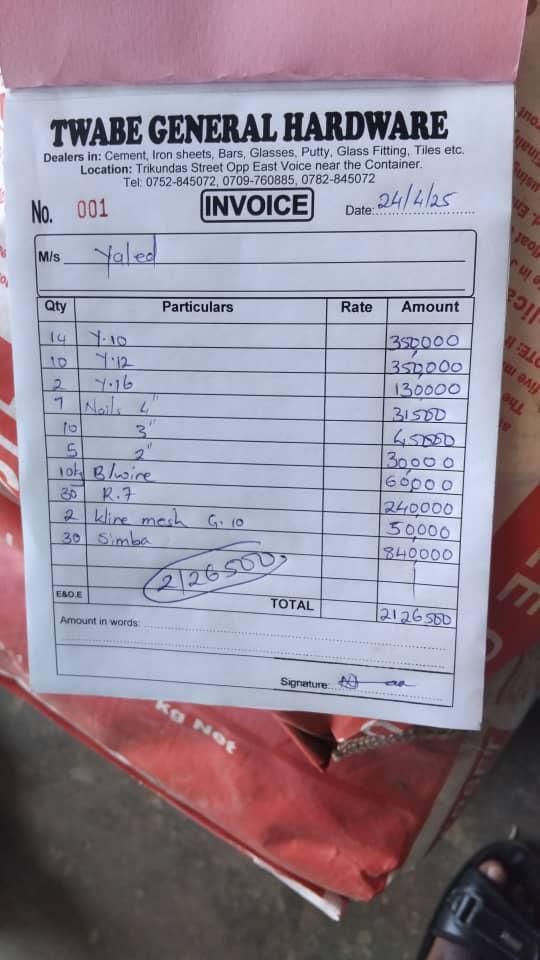 TWABE GENERAL HARDWARE
Dealers in: Cement, Iron sheets, Bars, Glasses, Putty, Glass Fitting, Tiles etc.
Location: Trikundas Street Opp East Voice near the Container.
Tel: 0752-845072, 0709-760885, 0782-845072
No. 001 INVOICE Date: 24/4/25
M/s Yaled
Qty Particulars Rate Amount
14 Y.10 350,000
10 Y.12 350,000
2 Y.16 130,000
7 Nails 4" 31500
10 3" 45000
5 2" 30,000
10kg B/wire 60,000
30 R.7 240,000
2 kline mesh G.10 50,000
30 Simba 840,000
2126500
E&O.E TOTAL 2126500
Amount in words:
Signature:
kg Net